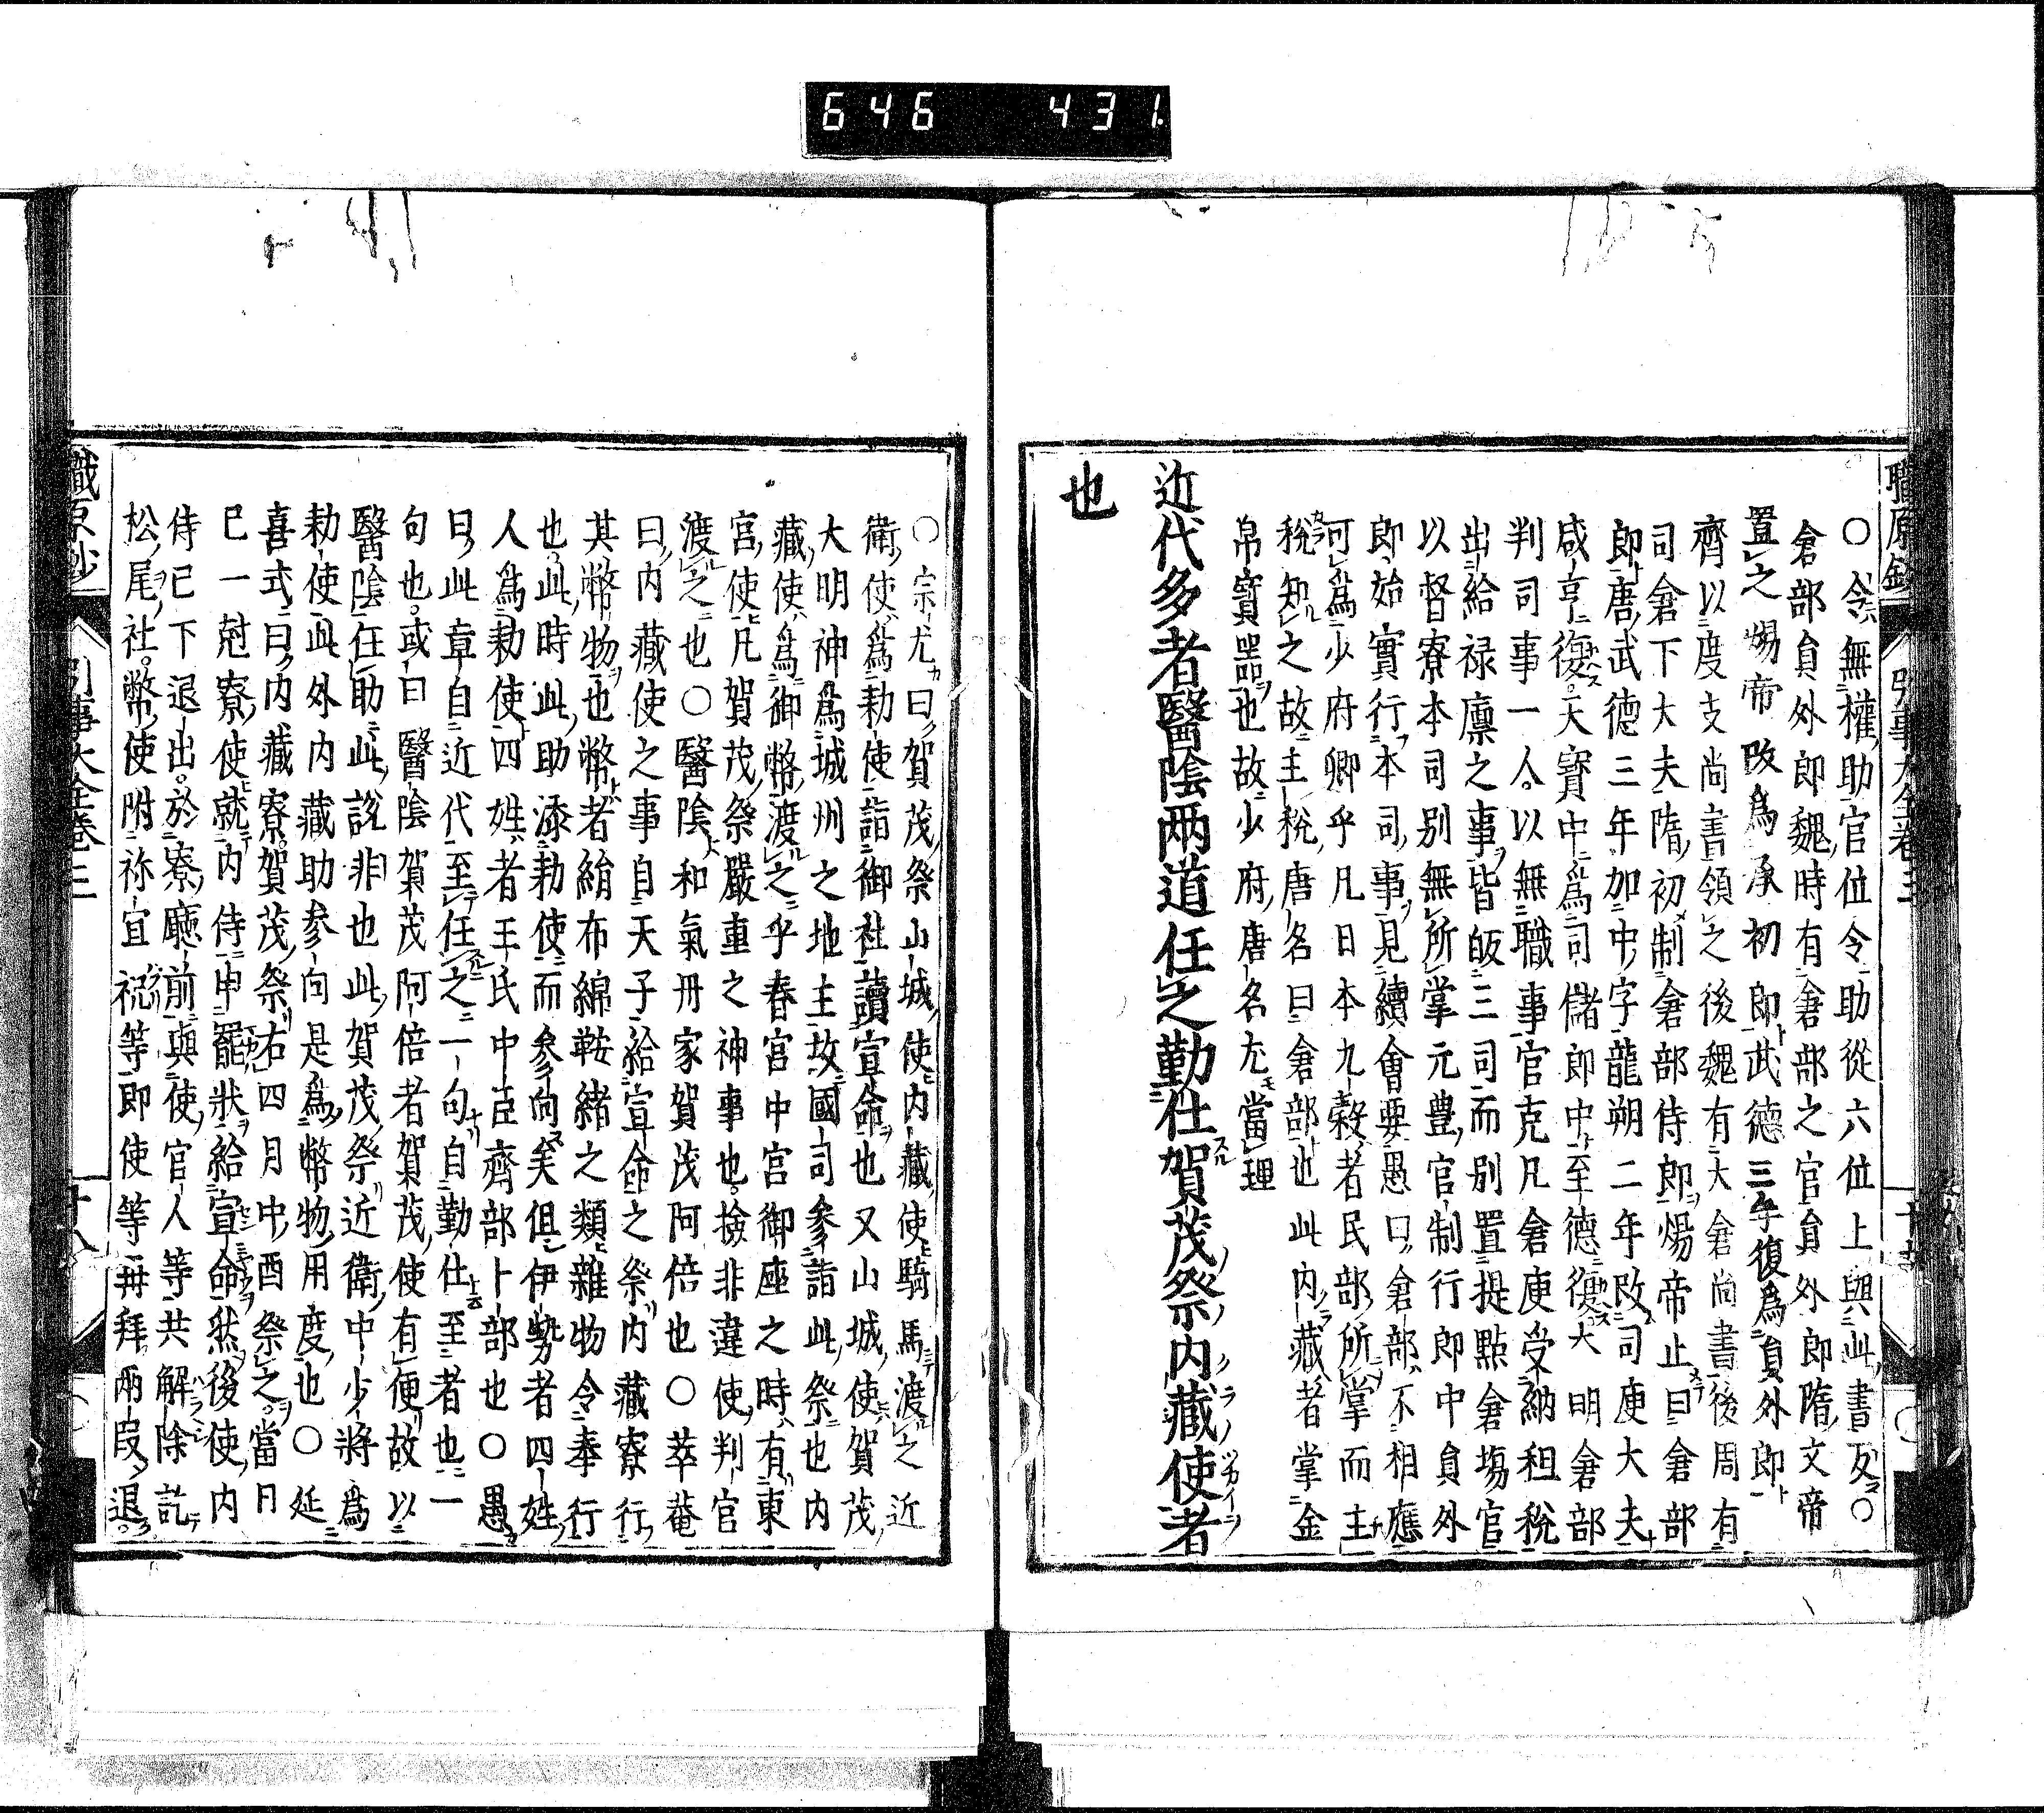 646 431.
職原鈔 引事大全卷三
〇令無權助官位令助從六位上與此書反〇
倉部員外郎魏時有倉部之官員外郎隋文帝
置之煬帝改爲承初郎武德三年復爲員外郎
齊以度支尚書領之後魏有大倉尚書後周有
司倉下大夫隋初制倉部侍郎煬帝止曰倉部
郎唐武德三年加中字龍朔二年改司庾大夫
咸亨復天寶中爲司儲郎中至德復大明倉部
判司事一人以無職事官克凡倉庾受納租税
出給禄廪之事皆皈三司而別置提點倉場官
以督寮本司別無所掌元豊官制行郎中員外
郎始實行本司事見續會要愚曰倉部不相應
可爲少府卿乎凡日本九穀者民部所掌而主
税知之故主税唐名曰倉部也此内藏者掌金
帛寳器也故少府唐名尤當理
近代多者醫陰兩道任之勤仕賀茂祭内藏使者
也
〇宗尤曰賀茂祭山城使内藏使騎馬渡之近
衛使爲勅使詣御社讀宣命也又山城使賀茂
大明神爲城州之地主故國司參詣此祭也内
藏使爲御幣渡之乎春宮中宮御座之時有東
宮使凡賀茂祭嚴重之神事也撿非違使判官
渡之也〇醫陰和氣丹家賀茂阿倍也〇萃菴
曰内藏使之事自天子給宣命之祭内藏寮行
其幣物也幣者絹布綿鞍緒之類雜物令奉行
也此時此助添勅使而參向矣但伊勢者四姓
人爲勅使四姓者王氏中臣齊部卜部也〇愚
曰此章自近代至任之一句自勤仕至者也一
句也或曰醫陰賀茂阿倍者賀茂使有便故以
醫陰任助此説非也此賀茂祭近衛中少將爲
勅使此外内藏助參向是爲幣物用度也〇延
喜式曰内藏寮賀茂祭右四月中酉祭之當日
巳一尅寮使就内侍申罷狀給宣命然後使内
侍已下退出於寮廳前與使官人等共解除訖
松尾社幣使附祢宜祝等即使等再拜兩段退
職原鈔 引事大全卷三 十八